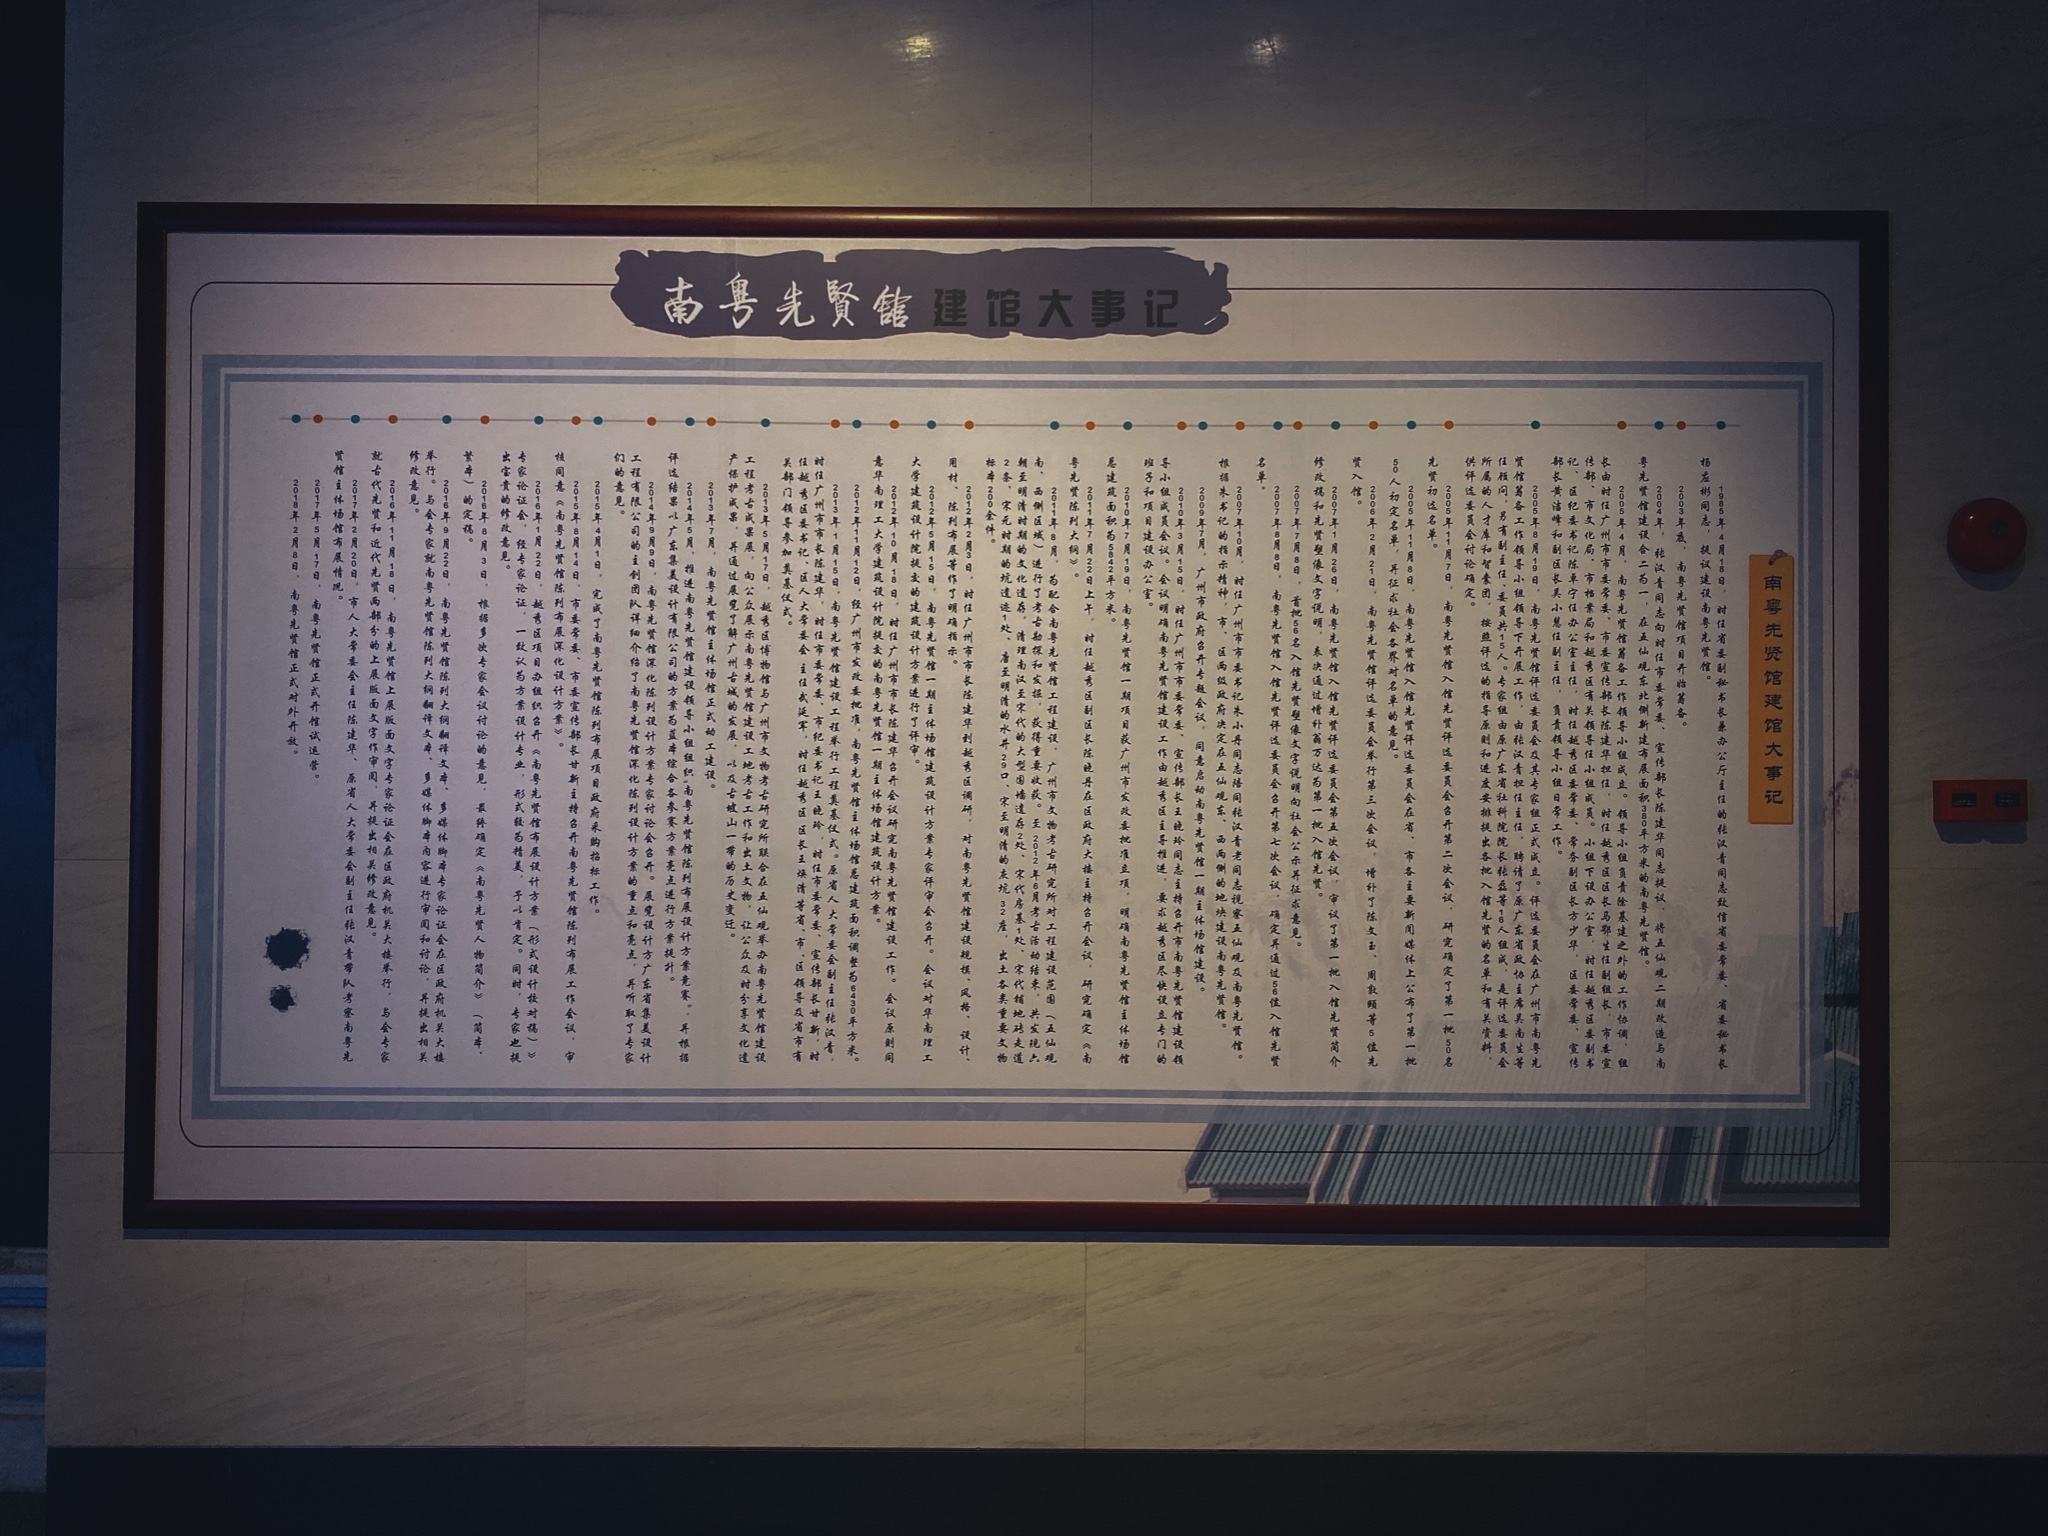 南粤先賢館 建馆大事记
南粤先贤馆建馆大事记
1985年4月18日，时任省委副秘书长兼办公厅主任的张汉青同志致信省委常委、省委秘书长
杨应彬同志，提议建设南粤先贤馆。
2003年底，南粤先贤馆项目开始筹备。
2004年，张汉青同志向时任市委常委、宣传部长陈建华同志提议，将五仙观二期改造与南
粤先贤馆建设合二为一，在五仙观东北侧新建布展面积380平方米的南粤先贤馆。
2005年4月，南粤先贤馆筹备工作领导小组成立。领导小组负责除基建之外的工作协调，组
长由时任广州市市委常委、市委宣传部长陈建华担任，时任越秀区区长马鄂生任副组长，市委宣
传部、市文化局、市档案局和越秀区有关领导任小组成员。小组下设办公室，时任越秀区委副书
记、区纪委书记陈卓宁任办公室主任，时任越秀区委常委、常务副区长方少华，区委常委、宣传
部长黄洁峰和副区长吴小慧任副主任，负责领导小组日常工作。
2005年8月19日，南粤先贤馆评选委员会及其专家组正式成立。评选委员会在广州市南粤先
贤馆筹备工作领导小组领导下开展工作，由张汉青担任主任，聘请了原广东省政协主席吴南生等
任顾问，另有副主任、委员共15人。专家组由原广东省社科院院长张磊等16人组成，是评选委员会
所属的人才库和智囊团，按照评选的指导原则和进度安排提出各批入馆先贤的名单和有关资料，
供评选委员会讨论确定。
2005年11月7日，南粤先贤馆入馆先贤评选委员会召开第二次会议，研究确定了第一批50名
先贤初选名单。
2005年11月8日，南粤先贤馆入馆先贤评选委员会在省、市各主要新闻媒体上公布了第一批
50人初定名单，并征求社会各界对名单的意见。
2006年2月21日，南粤先贤馆评选委员会举行第三次会议，增补了陈文玉、周敦颐等5位先
贤入馆。
2007年1月26日，南粤先贤馆入馆先贤评选委员会第五次会议，审议了第一批入馆先贤简介
修改稿和先贤塑像文字说明，表决通过增补翁万达为第一批入馆先贤。
2007年7月8日，首批56名入馆先贤塑像文字说明向社会公示并征求意见。
2007年8月8日，南粤先贤馆入馆先贤评选委员会召开第七次会议，确定并通过56位入馆先贤
名单。
2007年10月，时任广州市市委书记朱小丹同志陪同张汉青老同志视察五仙观及南粤先贤馆。
根据朱书记的指示精神，市、区两级政府决定在五仙观东、西两侧的地块建设南粤先贤馆。
2009年7月，广州市政府召开专题会议，同意启动南粤先贤馆一期主体场馆建设。
2010年3月15日，时任广州市市委常委、宣传部长王晓玲同志主持召开市南粤先贤馆建设领
导小组成员会议。会议明确南粤先贤馆建设工作由越秀区主导推进，要求越秀区尽快设立专门的
班子和项目建设办公室。
2010年7月19日，南粤先贤馆一期项目获广州市发改委批准立项，明确南粤先贤馆主体场馆
总建筑面积为5842平方米。
2011年7月22日上午，时任越秀区副区长陈晓丹在区政府大楼主持召开会议，研究确定《南
粤先贤馆陈列大纲》。
2011年8月，为配合南粤先贤馆工程建设，广州市文物考古研究所对工程建设范围（五仙观
南、西侧区域）进行了考古勘探和发掘，获得重要收获。至2012年6月考古活动结束，共发现六
朝至明清时期的文化遗存，清理南汉至宋代的大型围墙遗存2处、宋代房基1处、宋代铺地砖走道
2条、宋元时期的坑道遗迹1处、唐至明清的水井29口、宋至明清的灰坑32座，出土各类重要文物
标本200余件。
2012年2月3日，时任广州市市长陈建华到越秀区调研，对南粤先贤馆建设规模、风格、设计、
用材、陈列布展等作了明确指示。
2012年5月15日，南粤先贤馆一期主体场馆建筑设计方案专家评审会召开。会议对华南理工
大学建筑设计院提交的建筑设计方案进行了评审。
2012年10月18日，时任广州市市长陈建华召开会议研究南粤先贤馆建设工作。会议原则同
意华南理工大学建筑设计院提交的南粤先贤馆一期主体场馆建筑设计方案。
2012年11月12日，经广州市发改委批准，南粤先贤馆主体场馆总建筑面积调整为6430平方米。
2013年1月15日，南粤先贤馆建设工程举行工程奠基仪式。原省人大常委会副主任张汉青，
时任广州市市长陈建华，时任市委常委、市纪委书记王晓玲，时任市委常委、宣传部长甘新，时
任越秀区委书记、区人大常委会主任武延军，时任越秀区区长王焕清等省、市、区领导及省市有
关部门领导参加奠基仪式。
2013年5月17日，越秀区博物馆与广州市文物考古研究所联合在五仙观举办南粤先贤馆建设
工程考古成果展，向公众展示南粤先贤馆建设工地考古工作和出土文物，让公众及时分享文化遗
产保护成果，并通过展览了解广州古城的发展，以及古坡山一带的历史变迁。
2013年7月，南粤先贤馆主体场馆正式动工建设。
2014年5月，推进南粤先贤馆建设领导小组组织“南粤先贤馆陈列布展设计方案竞赛”，并根据
评选结果以广东集美设计有限公司的方案为蓝本综合各参赛方案亮点进行方案提升。
2014年9月9日，南粤先贤馆深化陈列设计方案专家讨论会召开。展览设计方广东省集美设计
工程有限公司的主创团队详细介绍了南粤先贤馆深化陈列设计方案的重点和亮点，并听取了专家
们的意见。
2015年4月1日，完成了南粤先贤馆陈列布展项目政府采购招标工作。
2015年8月14日，市委常委、市委宣传部长甘新主持召开南粤先贤馆陈列布展工作会议，审
核同意《南粤先贤馆陈列布展深化设计方案》。
2016年1月22日，越秀区项目办组织召开《南粤先贤馆布展设计方案（形式设计校对稿）》
专家论证会，经专家论证，一致认为方案设计专业，形式较为精美，予以肯定。同时，专家也提
出宝贵的修改意见。
2016年8月3日，根据多次专家会议讨论的意见，最终确定《南粤先贤人物简介》（简本、
繁本）的定稿。
2016年9月22日，南粤先贤馆陈列大纲翻译文本、多媒体脚本专家论证会在区政府机关大楼
举行。与会专家就南粤先贤馆陈列大纲翻译文本、多媒体脚本内容进行审阅和讨论，并提出相关
修改意见。
2016年11月18日，南粤先贤馆上展版面文字专家论证会在区政府机关大楼举行，与会专家
就古代先贤和近代先贤两部分的上展版面文字作审阅，并提出相关修改意见。
2017年2月20日，市人大常委会主任陈建华、原省人大常委会副主任张汉青带队考察南粤先
贤馆主体场馆布展情况。
2017年5月17日，南粤先贤馆正式开馆试运营。
2018年2月8日，南粤先贤馆正式对外开放。